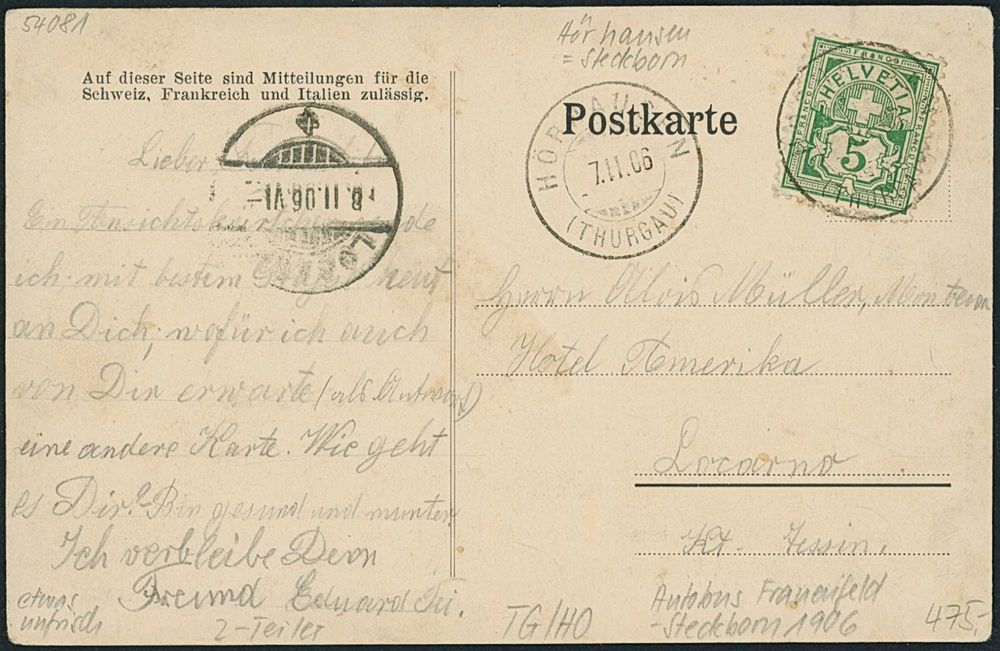 54081
Auf dieser Seite sind Mitteilungen für die
Schweiz, Frankreich und Italien zulässig.
Hörhausen
= Steckborn
Postkarte
HÖRHAUSEN
7.II.06
(THURGAU)
FRANCO
HELVETIA
5
8.II.06.VI
LO
Lieber
Ein Ansichtskärtchen
ich mit bestem
an Dich, wofür ich auch
von Dir erwarte (als Antwort)
eine andere Karte. Wie geht
es Dir? Bin gesund und munter.
Ich verbleibe Dein
Freund Eduard
Herrn Alois Müller,
Hotel Amerika
Locarno
Kt. Tessin.
etwas
unfrisch
2-Teiler
TG/HO
Autobus Frauenfeld
-Steckborn 1906
475.-